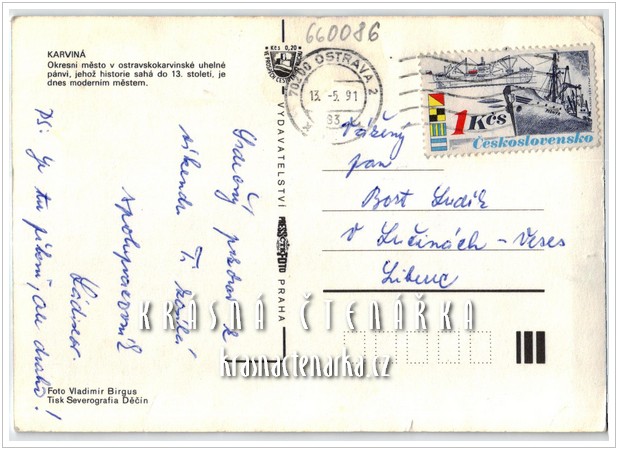 660086
KARVINÁ
Okresní město v ostravskokarvinské uhelné
pánvi, jehož historie sahá do 13. století, je
dnes moderním městem.
Kčs 0,20
702 00 OSTRAVA 2
13. -5. 91
1 Kčs
Československo
VYDAVATELSTVÍ
PRESSFOTO
PRAHA
Srdečný pozdrav z
víkendu Ti zasílá
spolupracovník
Ladislav
PS: Je tu pěkně, ale draho!
Vážený
pan
Bort Luděk
v Lučinách - Vesec
Liberec
KRÁSNÁ ČTENÁŘKA
www.krasnactenarka.cz
Foto Vladimír Birgus
Tisk Severografia Děčín